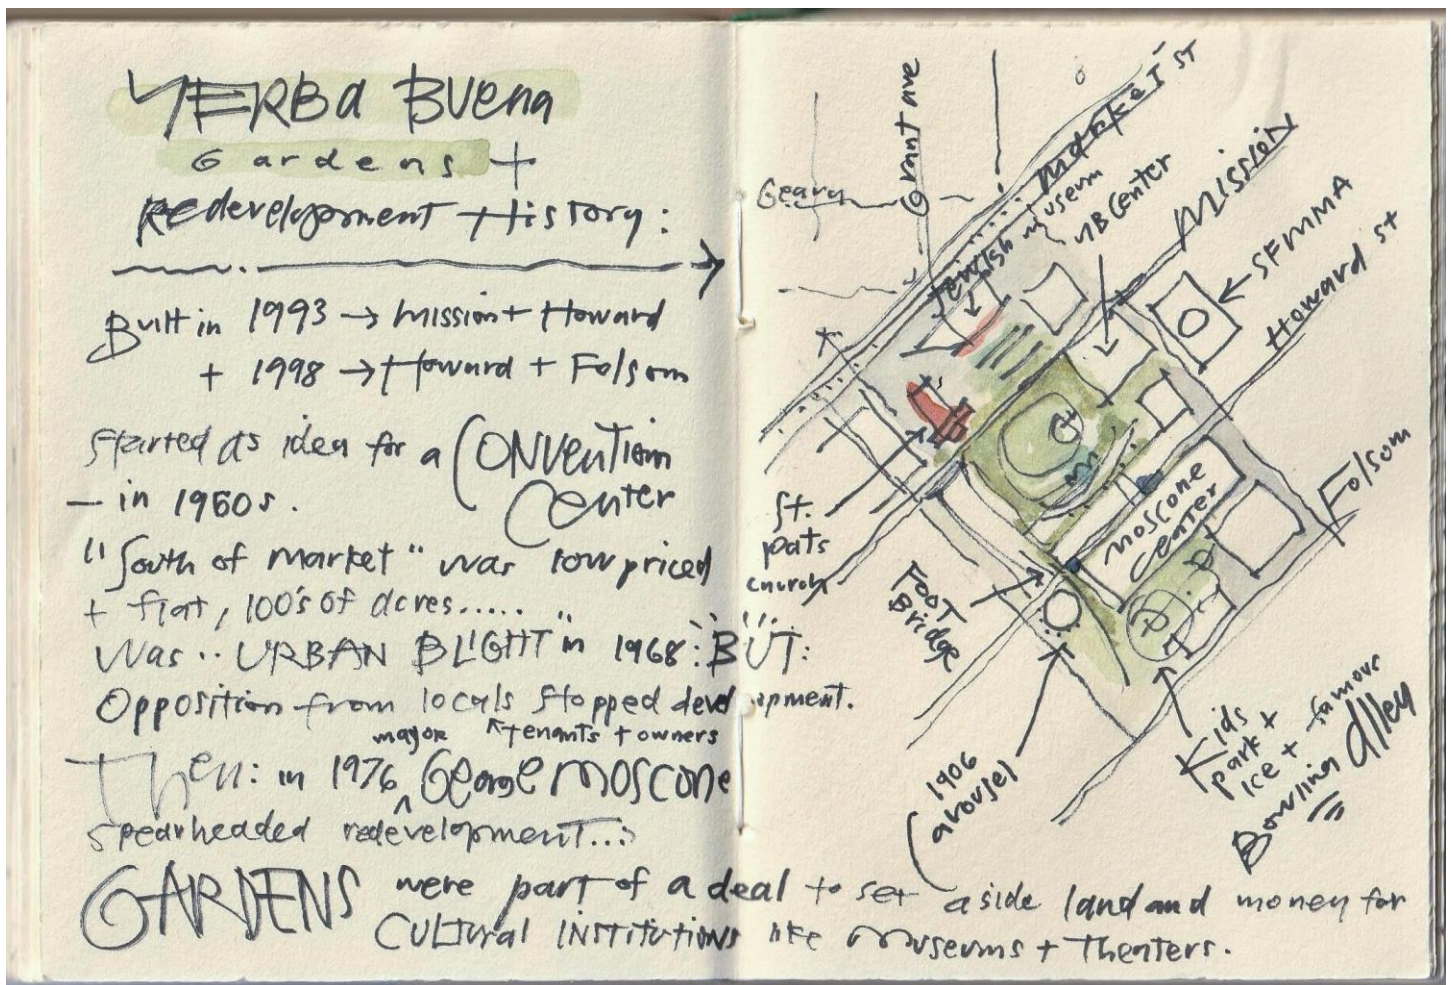 YERBA BUENA
Gardens +
Redevelopment History:
Built in 1993 → Mission + Howard
+ 1998 → Howard + Folsom
started as idea for a CONVENTION
Center
– in 1960s.
"South of Market" was low priced
+ flat, 100's of acres.....
Was.. "URBAN BLIGHT" in 1968: BUT:
Opposition from locals stopped development.
mayor ↖ tenants + owners
Then: in 1976 ^ George MOSCONE
spearheaded redevelopment...:
GARDENS were part of a deal to set aside land and money for
Cultural Institutions like Museums + Theaters.
Geary
Grant ave
Market ST
Jewish museum
YB Center
Mission
SFMMA
Howard st
Folsom
St.
pats
church
Moscone
center
FOOT
Bridge
1906
Carousel
Kids
park +
ice +
Bowling Alley